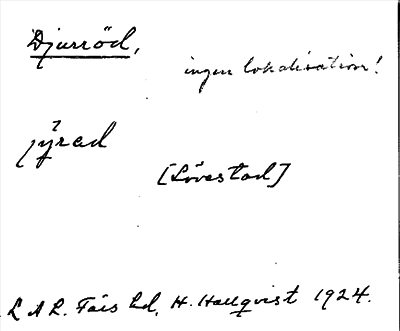 Djurröd,
ingen lokalisation!
jýrad
[Lövestad]
L A L. Färs hd, H. Hallqvist 1924.